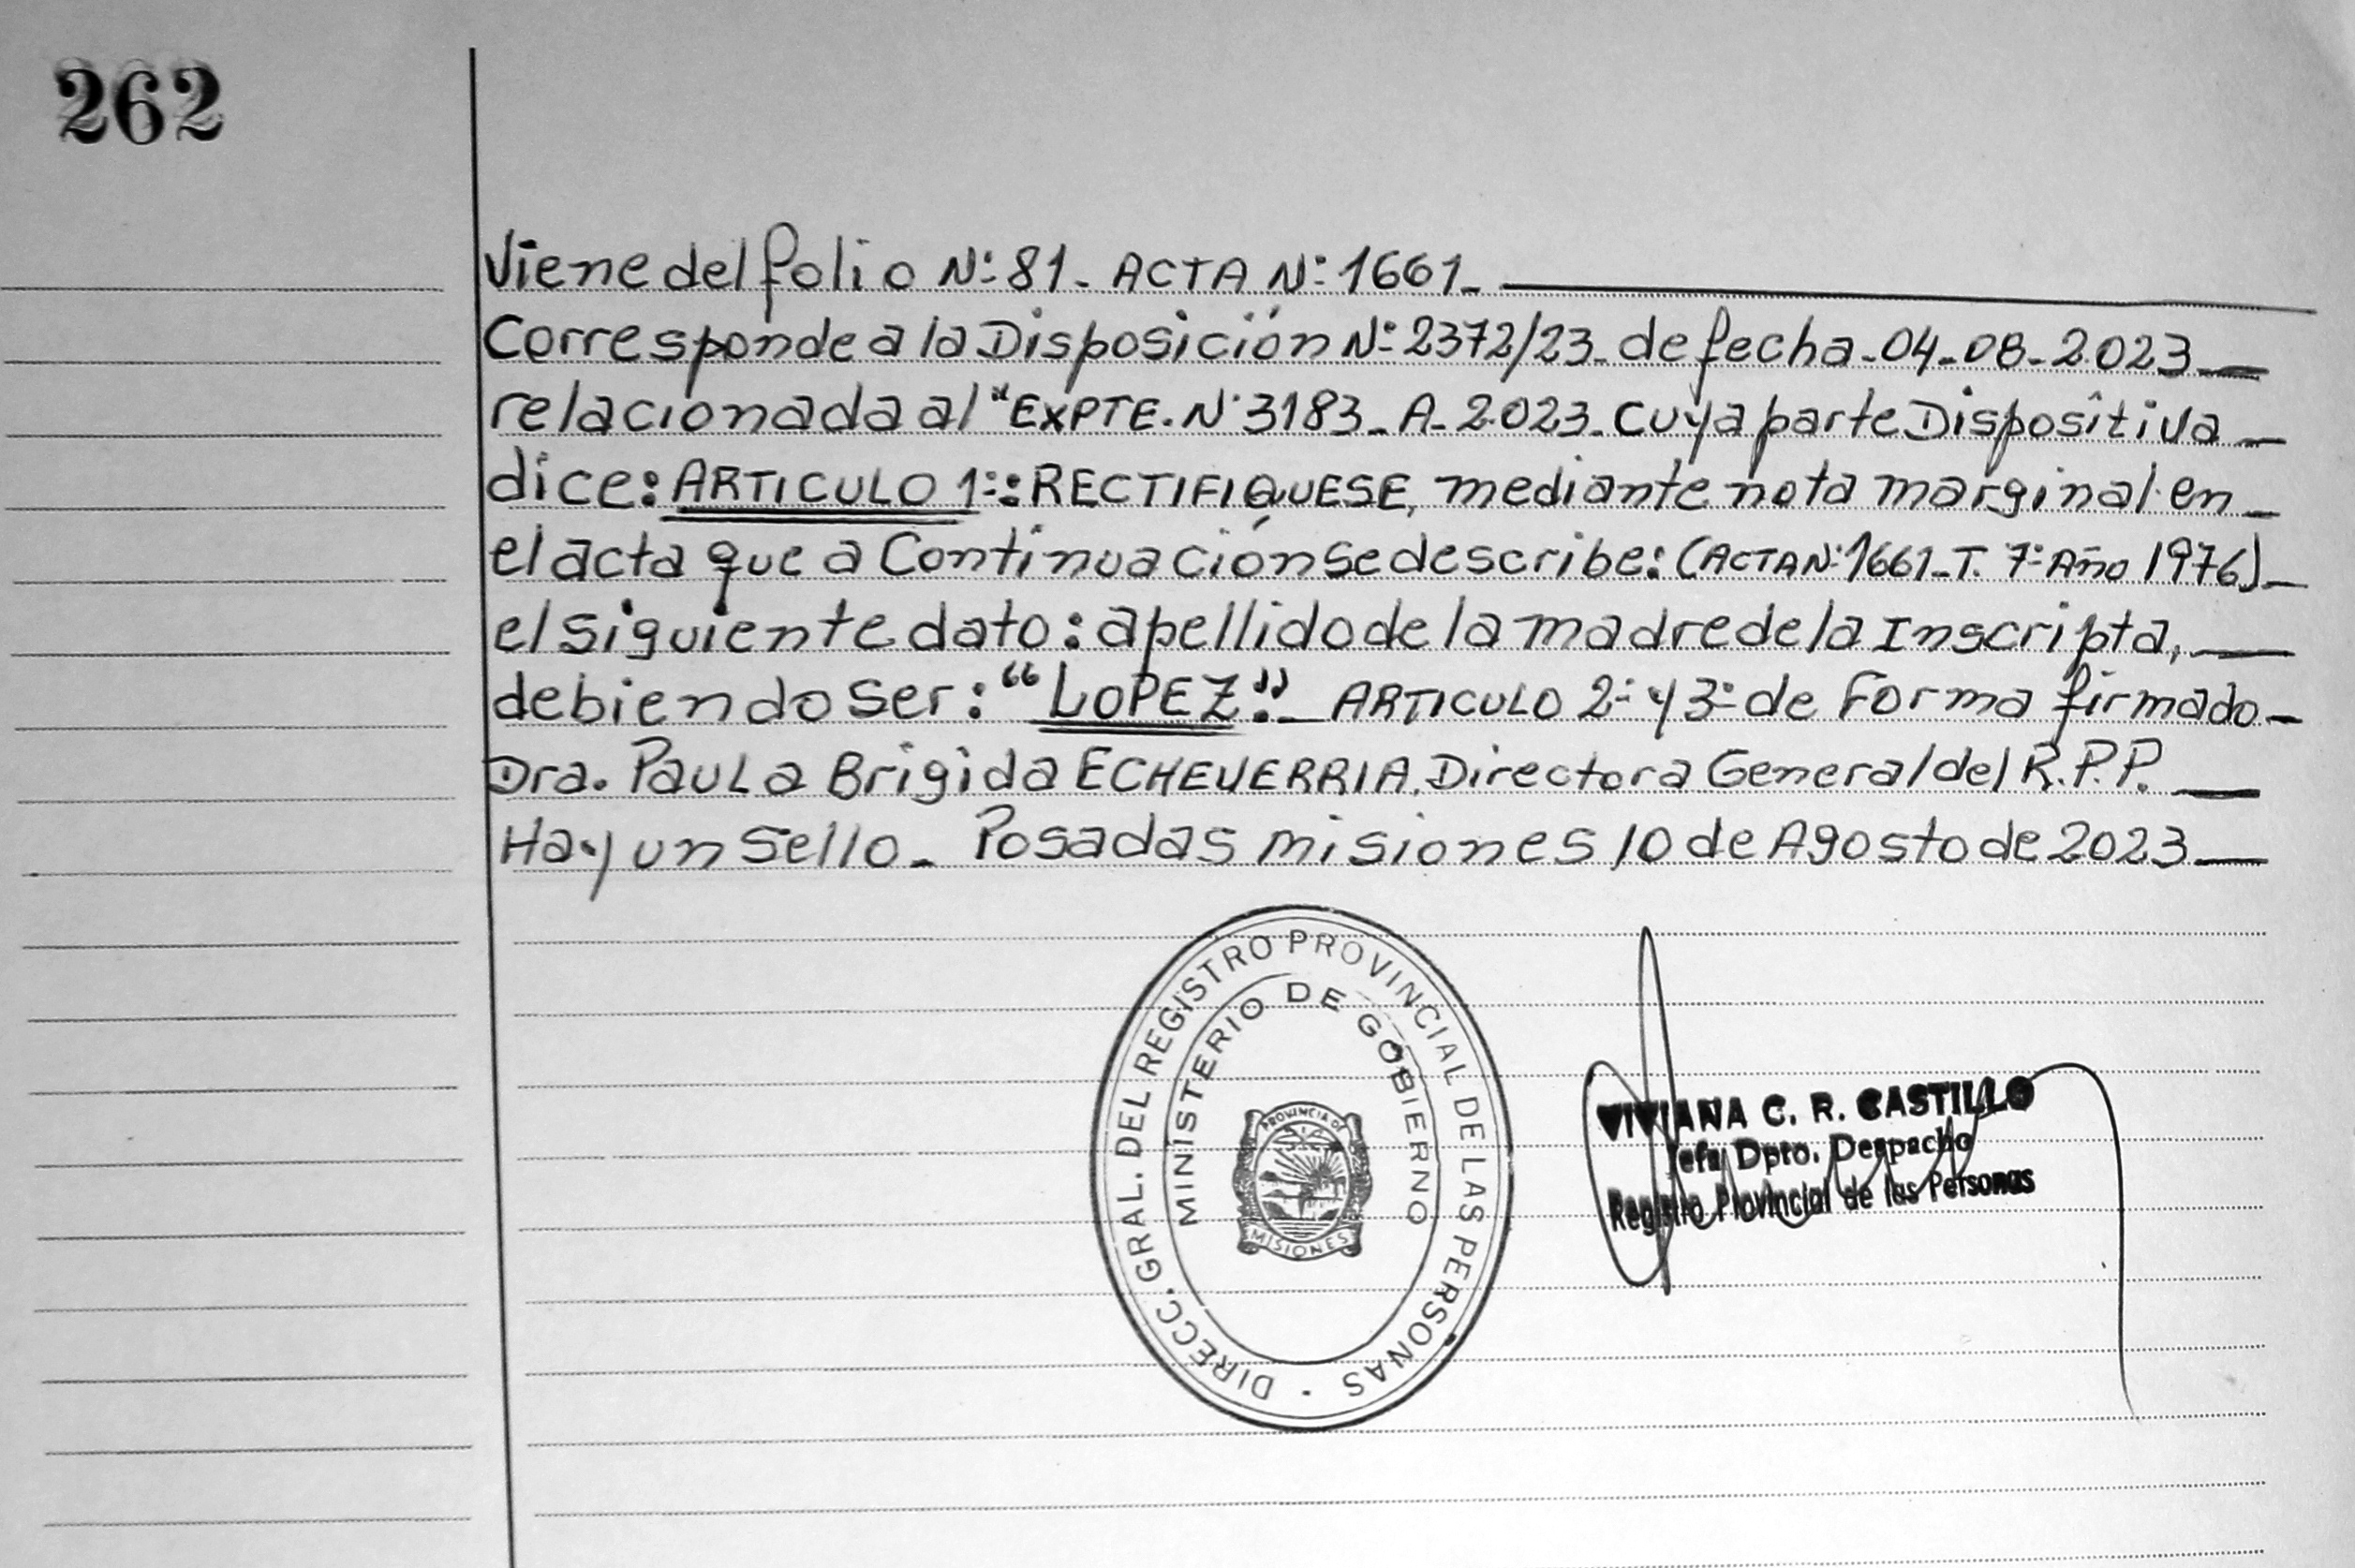 262
Viene del folio Nº 81 - ACTA Nº 1661 -
Corresponde a la Disposición Nº 2372/23 - de fecha - 04 - 08 - 2.023 -
relacionada al "EXPTE. Nº 3183 - A - 2.023 - Cuya parte Dispositiva -
dice: ARTICULO 1º: RECTIFIQUESE, mediante nota marginal en -
el acta que a Continuación se describe: (ACTA Nº 1661 - T. 7º Año 1976) -
el siguiente dato: apellido de la madre de la Inscripta, -
debiendo ser: "LOPEZ". - ARTICULO 2º y 3º de Forma firmado -
Dra. Paula Brigida ECHEVERRIA. Directora General del R.P.P. -
Hay un Sello - Posadas Misiones 10 de Agosto de 2023 -
DIRECC. GRAL. DEL REGISTRO PROVINCIAL DE LAS PERSONAS
MINISTERIO DE GOBIERNO
PROVINCIA DE
MISIONES
VIVIANA C. R. CASTILLO
Jefa Dpto. Despacho
Registro Provincial de las Personas